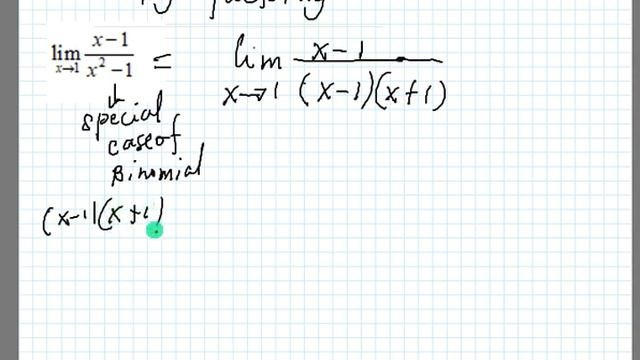 By factoring
lim x→1 x−1 / x² −1 = lim x→1 x−1 / (x−1)(x+1)
special
case of
Binomial
(x−1)(x+1)